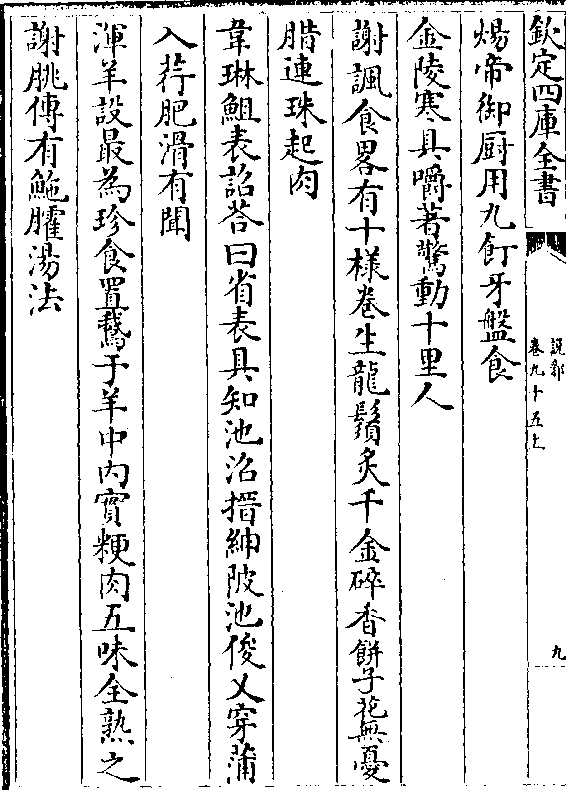 欽定四庫全書
說郛
卷九十五上
九
煬帝御厨用九飣牙盤食
金陵寒具嚼著驚動十里人
謝諷食畧有十樣卷生龍鬚炙千金碎香餅子花無憂
腊連珠起肉
韋琳䱇表詔荅曰省表具知池沼搢紳陂池俊乂穿蒲
入荇肥滑有聞
渾羊設最為珍食置鵞于羊中内實粳肉五味全熟之
謝朓傳有鮑臛湯法